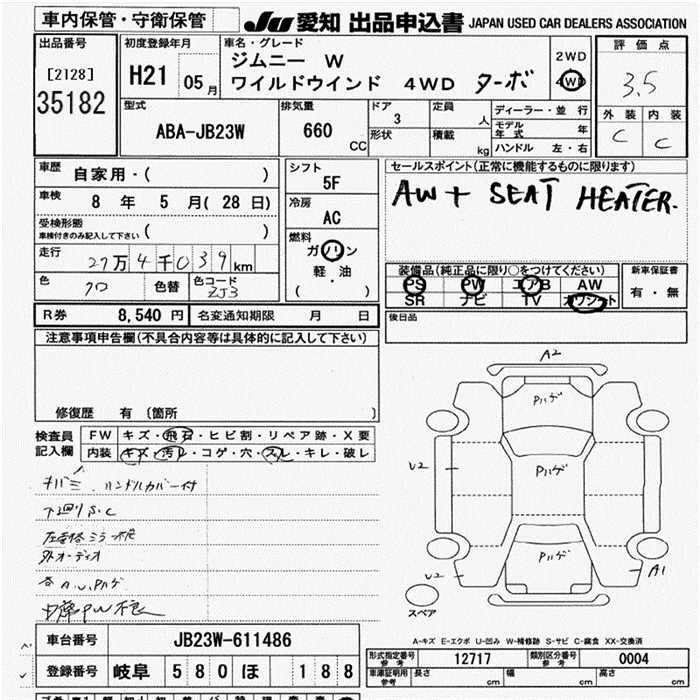 車内保管・守衛保管
JU 愛知 出品申込書 JAPAN USED CAR DEALERS ASSOCIATION
出品番号
[2128]
35182
初度登録年月
H21 05月
車名・グレード
ジムニー W
ワイルドウインド 4WD ターボ
2WD
4WD
評価点
3.5
外装 内装
C C
型式
ABA-JB23W
排気量
660 CC
ドア
3
形状
定員
人
積載
kg
ディーラー・並行
モデル年式 年
ハンドル 左・右
車歴
自家用・( )
車検
8 年 5 月( 28 日)
受検形態
車検付きのみ記入して下さい ( )
走行
27万4千039km
色
クロ
色替
色コード
ZJ3
シフト
5F
冷房
AC
燃料
ガソリン
軽・油
( )
セールスポイント(正常に機能するものに限ります)
AW + SEAT HEATER.
装備品(純正品に限り○をつけてください)
PS PW エアB AW
SR ナビ TV カワシート
新車保証書
有・無
R券 8,540円 名変通知期限 月 日
後日品
注意事項申告欄(不具合内容等は具体的に記入して下さい)
修復歴 有 〔箇所 〕
検査員
記入欄
FW キズ・飛石・ヒビ割・リペア跡・X要
内装 キズ・汚レ・コゲ・穴・スレ・キレ・破レ
キバミ ハンドルカバー付
下廻りS.C
外オーディオ
各A.U.Pハゲ
A2
Pハゲ
U2
Pハゲ
Pハゲ
U2
A1
スペア
A-キズ E-エクボ U-凹み W-補修跡 S-サビ C-腐食 XX-交換済
車台番号 JB23W-611486
登録番号 岐阜 580 ほ 188
形式指定番号 参考 12717 類別区分番号 参考 0004
車庫証明用 参考 長さ cm 幅 cm 高さ cm